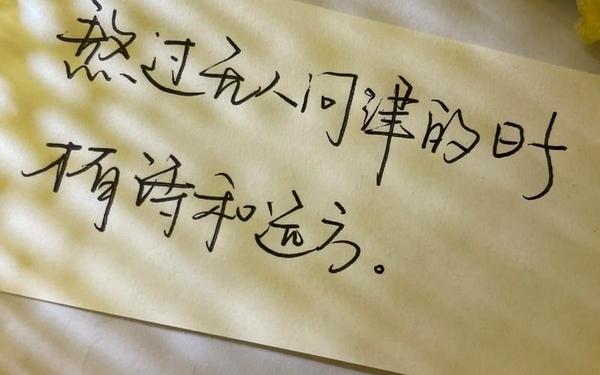 熬过无人问津的日子
才有诗和远方。